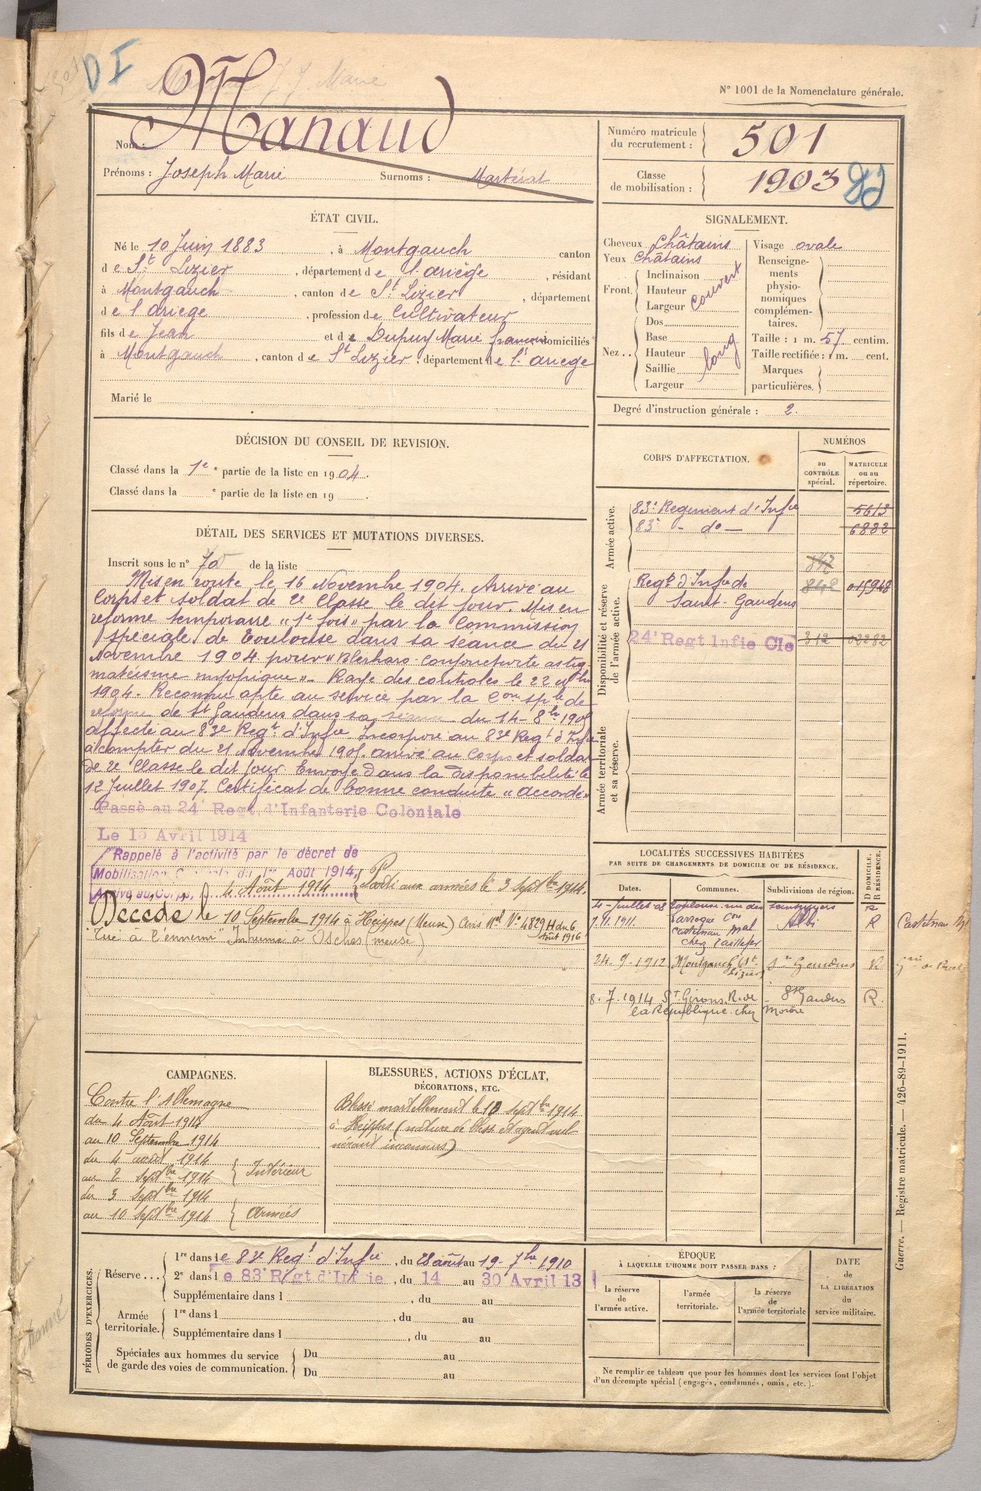 D I
N° 1001 de la Nomenclature générale.
Nom : Manaud
Prénoms : Joseph Marie Surnoms : Martérat
Numéro matricule du recrutement : 501
Classe de mobilisation : 1903
ÉTAT CIVIL.
Né le 10 Juin 1883, à Montgauch canton
de St Lizier, département de l'ariège, résidant
à Montgauch, canton de St Lizier, département
de l'ariege, profession de Cultivateur
fils de Jean et de Dupuy Marie françoise domiciliés
à Montgauch, canton de St Lizier, département de l'ariege
Marié le
SIGNALEMENT.
Cheveux Châtains Visage ovale
Yeux châtains
Front. Inclinaison Hauteur Largeur couvert
Nez. Dos Base Hauteur Saillie Largeur long
Renseignements physionomiques complémentaires.
Taille : 1 m. 57 centim.
Taille rectifiée : 1 m. cent.
Marques particulières.
Degré d'instruction générale : 2.
DÉCISION DU CONSEIL DE REVISION.
Classé dans la 1e partie de la liste en 1904.
Classé dans la e partie de la liste en 19 .
DÉTAIL DES SERVICES ET MUTATIONS DIVERSES.
Inscrit sous le n° 70 de la liste
Mis en route le 16 Novembre 1904. Arrivé au
Corps et soldat de 2e Classe le dit jour. Mis en
réforme temporaire "1e fois" par la Commission
spéciale de Toulouse dans sa séance du 21
Novembre 1904 pour "Blépharo-conjonctivite astig
matisme myopique". Rayé des contrôles le 22 9bre
1904. Reconnu apte au service par la Con sple de
réforme de St Gaudens dans sa séance du 14-8bre 1905
affecté au 83e Regt d'Infie. Incorporé au 83e Regt d'Infie
à compter du 21 Novembre 1905 arrivé au Corps et soldat
de 2e Classe le dit jour. Envoyé dans la disponibilité le
12 Juillet 1907. Certificat de bonne conduite "accordé"
Passé au 24e Regt. d'Infanterie Coloniale
Le 15 Avril 1914
Rappelé à l'activité par le décret de
Mobilisation Générale du 1er Août 1914,
Arrivé au Corps 4 Août 1914. Parti aux armées le 3 Septbre 1914.
Décédé le 10 Septembre 1914 à Heippes (Meuse) Avis Mel N° 4829 H du 6 Août 1916
"Tué à l'ennemi" Inhumé à Osches (meuse)
CORPS D'AFFECTATION.
NUMÉROS
au CONTRÔLE spécial.
MATRICULE ou au répertoire.
Armée active.
83e Regiment d'Infie 5613
83e - do - 6832
Disponibilité et réserve de l'armée active.
842
Regt d'Infie de 015948
Saint-Gaudens
24e Regt Infie Cle 312 02282
Armée territoriale et sa réserve.
LOCALITÉS SUCCESSIVES HABITÉES
PAR SUITE DE CHANGEMENTS DE DOMICILE OU DE RÉSIDENCE.
Dates. Communes. Subdivisions de région. D DOMICILE, R RÉSIDENCE.
4-Juillet 08 Toulouse rue des R
7.11.1911. Larroque Cne Albi R
Castelnau Mal
chez Taillefer
24.9.1912 Montgauch Ct St Lizier St Gaudens R
8.7.1914 St Girons R. de St Gaudens R.
la République chez
CAMPAGNES.
Contre l'Allemagne
du 4 Août 1914
au 10 Septembre 1914
du 4 août 1914
au 2 Septbre 1914 Intérieur
du 3 Septbre 1914
au 10 Septbre 1914 Armées
BLESSURES, ACTIONS D'ÉCLAT,
DÉCORATIONS, ETC.
Blessé mortellement le 10 Septbre 1914
à Heippes (nature de bless. et agent vul
nérant inconnus)
PÉRIODES D'EXERCICES.
Réserve... 1re dans le 83e Regt d'Infie, du 28 août au 19-7bre 1910
2e dans le 83e Régt d'Infie, du 14 au 30 Avril 13
Supplémentaire dans l , du au
Armée territoriale. 1re dans l , du au
Supplémentaire dans l , du au
Spéciales aux hommes du service de garde des voies de communication. Du au
Du au
ÉPOQUE
À LAQUELLE L'HOMME DOIT PASSER DANS :
la réserve de l'armée active.
l'armée territoriale.
la réserve de l'armée territoriale
DATE de LA LIBÉRATION du service militaire.
Ne remplir ce tableau que pour les hommes dont les services font l'objet
d'un décompte spécial (engagés, condamnés, omis, etc.).
Guerre. — Registre matricule. — 426-89-1911.